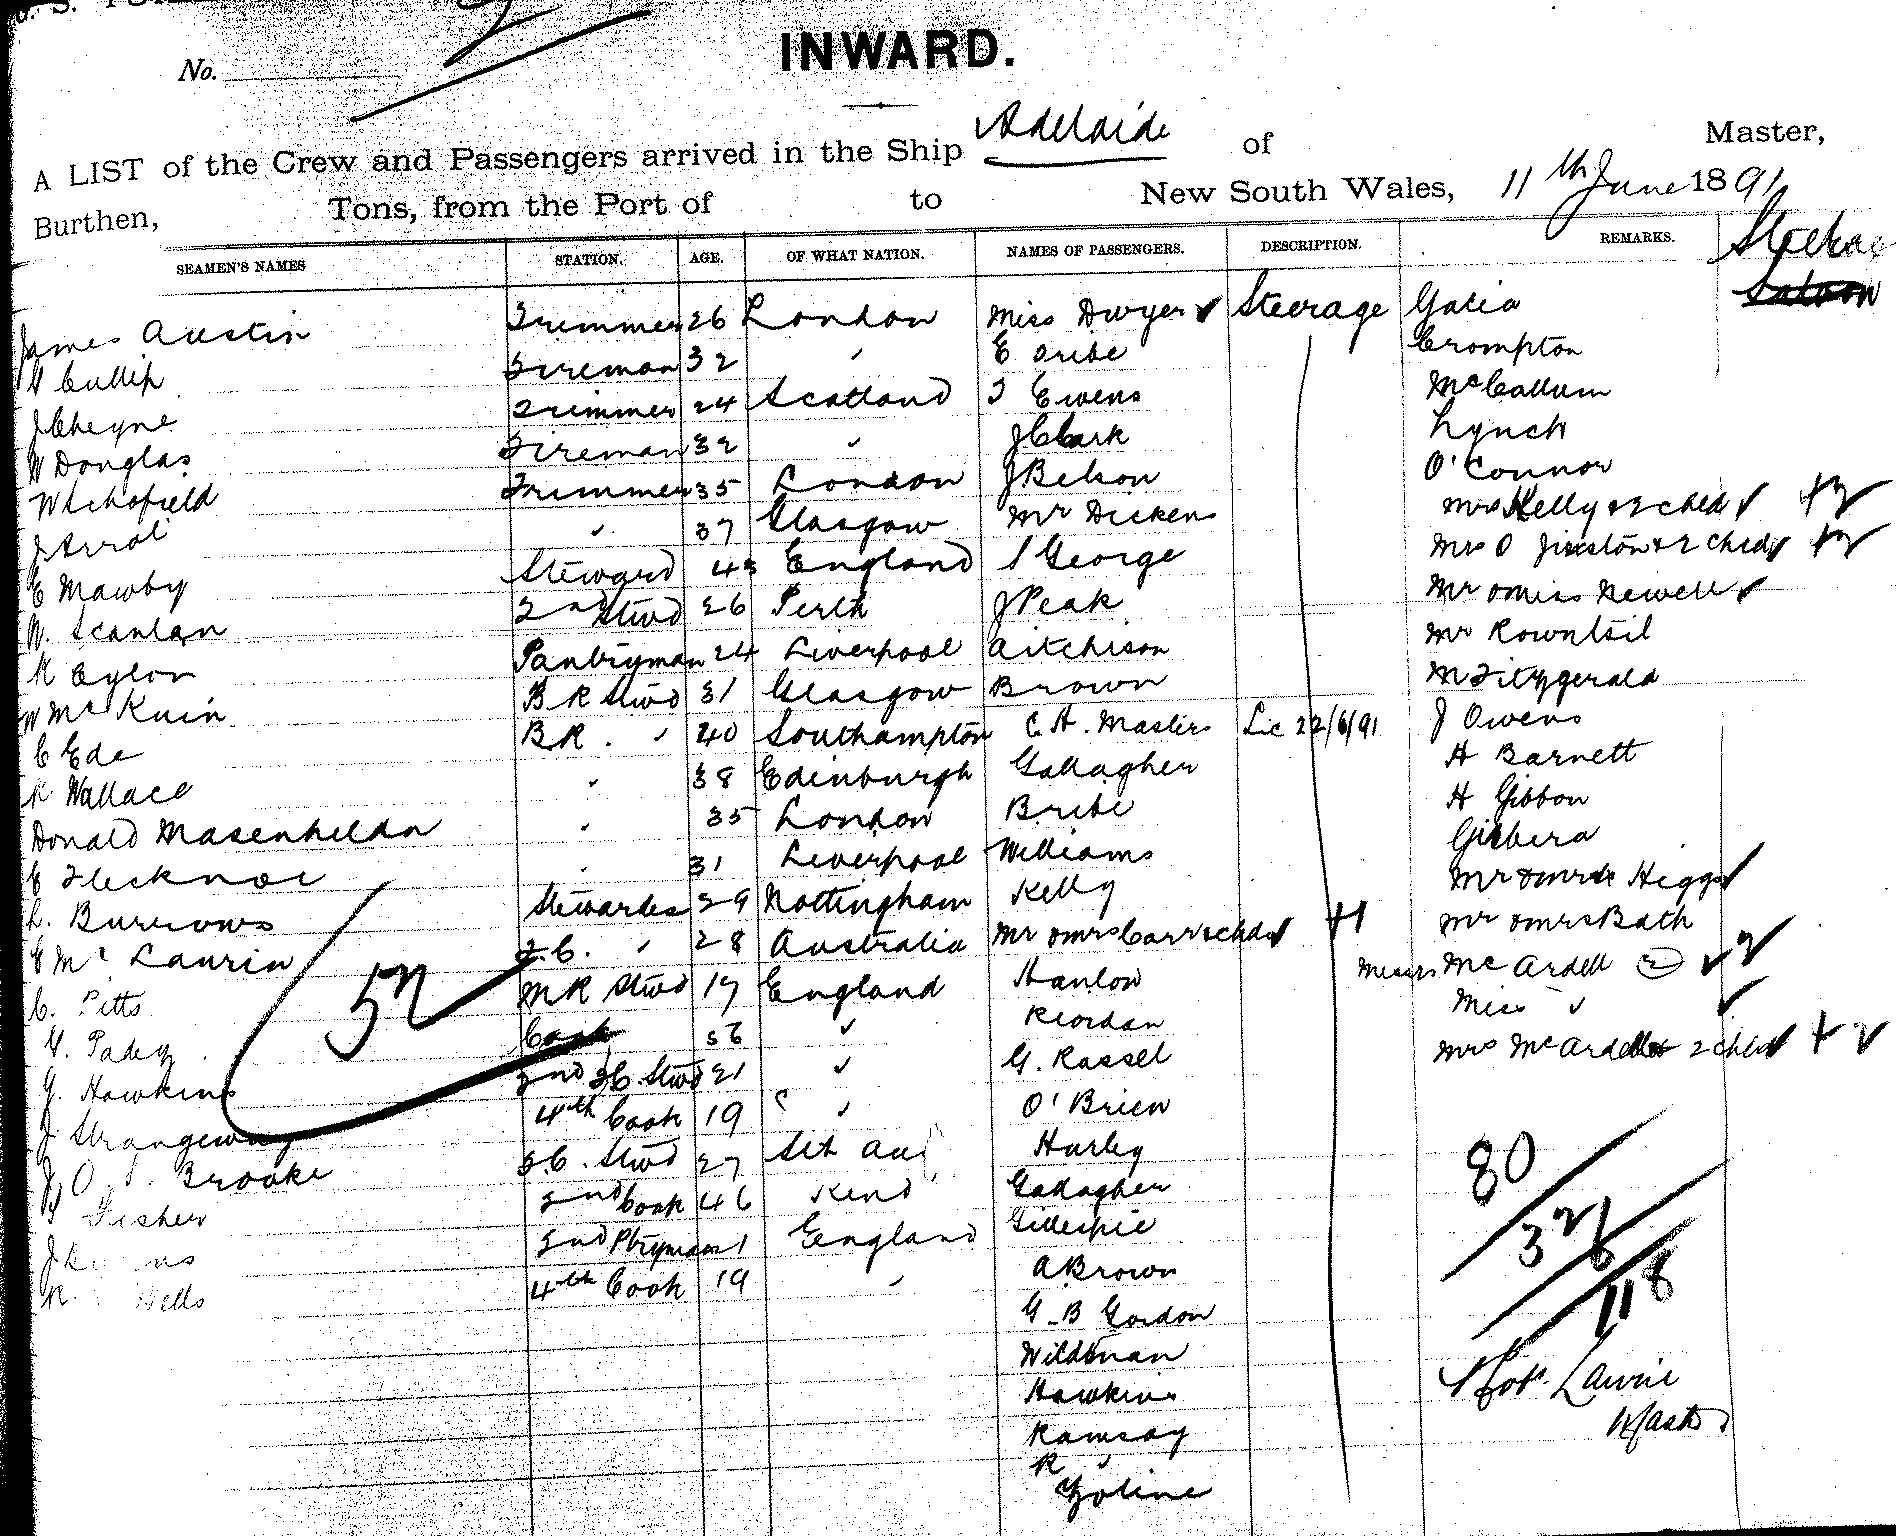 INWARD.
No.
A LIST of the Crew and Passengers arrived in the Ship Adelaide of Master,
Burthen, Tons, from the Port of to New South Wales, 11th June 1891
SEAMEN'S NAMES STATION. AGE. OF WHAT NATION. NAMES OF PASSENGERS. DESCRIPTION. REMARKS.
Saloon
James Austin Trimmer 26 London Miss Dwyer Steerage Galia
Cullip Fireman 32 " E Cribe Crompton
J Cheyne Trimmer 24 Scotland T Ewens McCallum
W Douglas Fireman 32 " J Clark Lynch
W Schofield Trimmer 35 London J Belson O'Connor
J Arrol " 37 Glasgow Mr Dickens Mrs Kelly & 2 child +2
E Mawby Steward 43 England S George Mrs O & 2 child +2
W. Scanlan 2nd Stwd 26 Perth J Peak Mr & Miss Newell
R Pantryman 24 Liverpool Aitchison Mr
W B R Stwd 31 Glasgow Brown M Fitzgerald
C Ede B R. " 40 Southampton C. A. Masters Lic 22/6/91 J Owens
R Wallace " 38 Edinburgh Gallagher H Barnett
Donald " 35 London Bribe H Gibbon
E Flecknoe " 31 Liverpool Williams
L. Burrows Stewardes 29 Nottingham Kelly Mr & Mrs Higgs
E Mc Laurin " 28 Australia Mr & Mrs Carr & child +1 Mr & Mrs Bath
C. Pitts M R Stwd 19 England Hanlon Messrs Mc Ardell 2
Cook 36 " Riordan Miss "
G. Hawkins 2nd Stwd 21 " G. Rassel Mrs McArdell & 2 child +2
J Strangeway 4th Cook 19 " O'Brien
Brooke Stwd 27 Hurley
Fisher 2nd Cook 46 Gallagher
2nd England Gillespie
Wells 4th Cook 19 " A Brown
G. B Gordon
Wildman
Hawkins
Ramsay
R "
52
80
32
6
118
Lawrie
Master